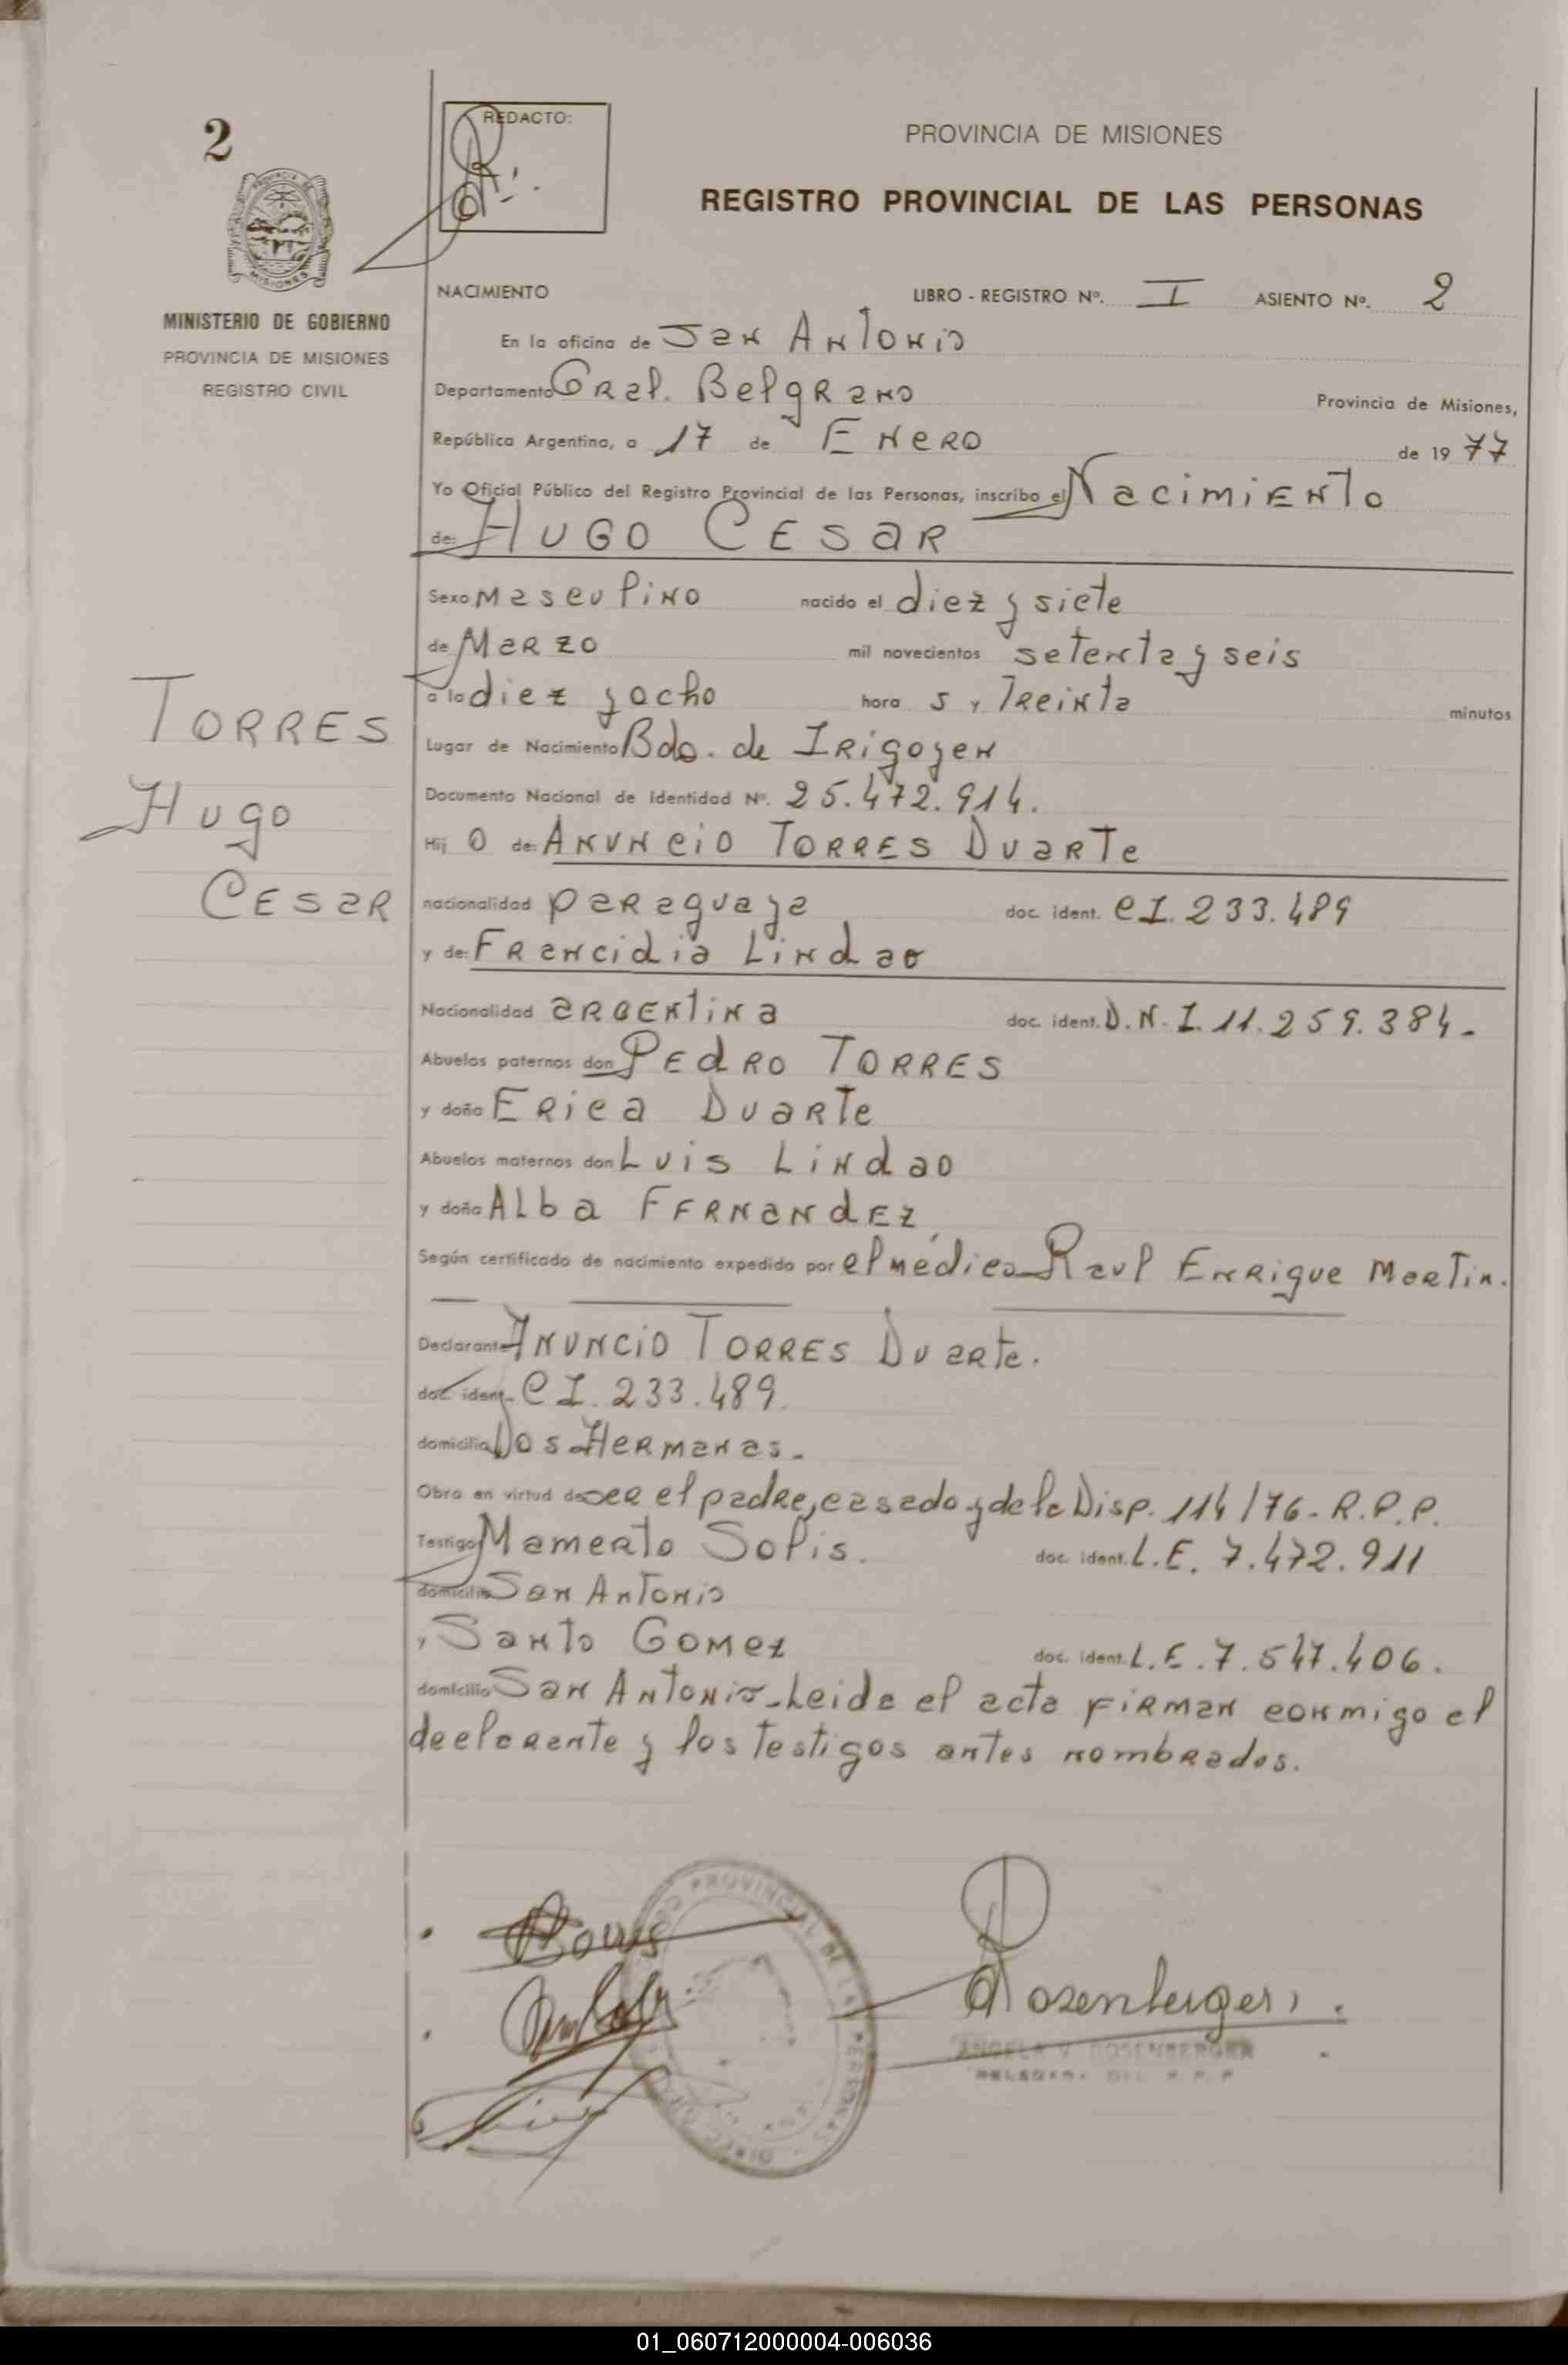 2
REDACTO:
PROVINCIA DE MISIONES
REGISTRO PROVINCIAL DE LAS PERSONAS
MINISTERIO DE GOBIERNO
PROVINCIA DE MISIONES
REGISTRO CIVIL
NACIMIENTO LIBRO - REGISTRO Nº. I ASIENTO Nº. 2
En la oficina de San Antonio
Departamento Gral. Belgrano Provincia de Misiones,
República Argentina, a 17 de Enero de 1977
Yo Oficial Público del Registro Provincial de las Personas, inscribo el Nacimiento
de: Hugo Cesar
Sexo Masculino nacido el diez y siete
de Marzo mil novecientos setenta y seis
a la diez y ocho hora s y Treinta minutos
Torres
Hugo
Cesar
Lugar de Nacimiento Bdo. de Irigoyen
Documento Nacional de Identidad Nº. 25.472.914.
Hij o de: Anuncio Torres Duarte
nacionalidad paraguaya doc. ident. CI. 233.489
y de: Francidia Lindao
Nacionalidad argentina doc. ident. D.N.I. 11.259.384.-
Abuelos paternos don Pedro Torres
y doña Erica Duarte
Abuelos maternos don Luis Lindao
y doña Alba Fernandez
Según certificado de nacimiento expedido por el médico Raul Enrique Martin.
Declarante Anuncio Torres Duarte.
doc. ident. CI. 233.489.
domicilio Dos Hermanas.-
Obra en virtud de ser el padre, casado y de la Disp. 114/76-R.P.P.
Testigos Mamerto Solis. doc. ident. L.E. 7.472.911
domicilio San Antonio
y Santo Gomez doc. ident. L.E. 7.547.406.
domicilio San Antonio-Leida el acta firman conmigo el
declarante y los testigos antes nombrados.
Rosenberger
ANGELA V. ROSENBERGER
DEL R.P.P
PROVINCIAL DE LAS PERSONAS
01_060712000004-006036